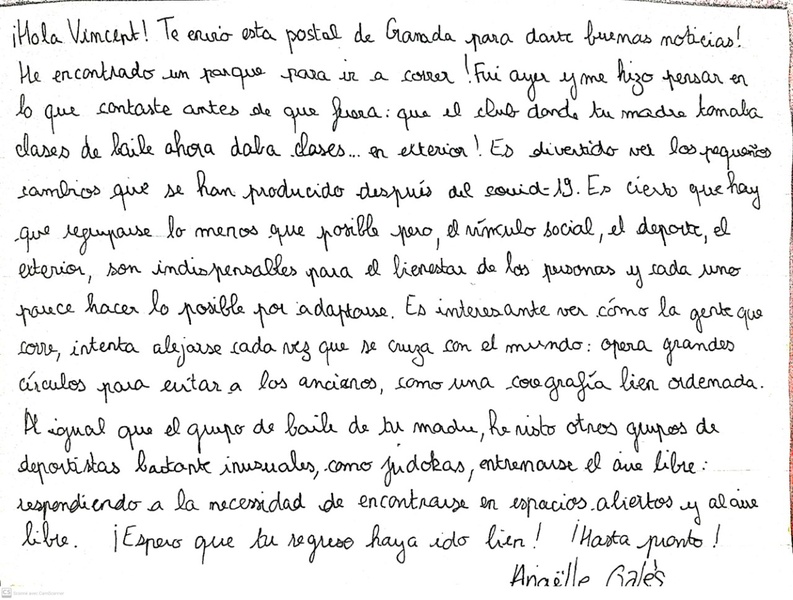 ¡Hola Vincent! Te envío esta postal de Granada para darte buenas noticias!
He encontrado un parque para ir a correr! Fui ayer y me hizo pensar en
lo que contaste antes de que fuera: que el club donde tu madre tomaba
clases de baile ahora daba clases... en exterior! Es divertido ver los pequeños
cambios que se han producido después del covid-19. Es cierto que hay
que reguparse lo menos que posible pero, el vínculo social, el deporte, el
exterior, son indispensables para el bienestar de las personas y cada uno
parece hacer lo posible por adaptarse. Es interesante ver cómo la gente que
corre, intenta alejarse cada vez que se cruza con el mundo: opera grandes
círculos para evitar a los ancianos, como una coregrafía bien ordenada.
Al igual que el grupo de baile de tu madre, he visto otros grupos de
deportistas bastante inusuales, como júdokas, entrenarse el aire libre:
respondiendo a la necessidad de encontrarse en espacios abiertos y al aire
libre. ¡Espero que tu regreso haya ido bien! ¡Hasta pronto!
Anaëlle Galès